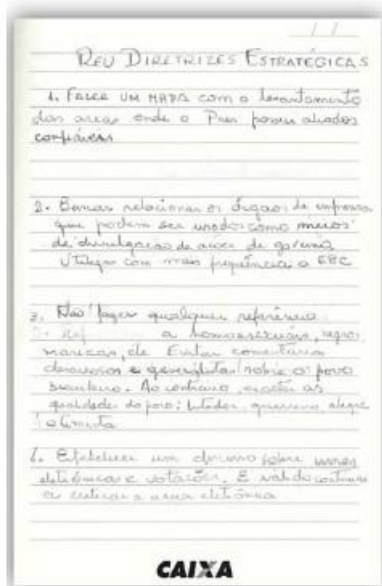 REU DIRETRIZES ESTRATÉGICAS
1. FAZER UM MAPA com o levantamento
das áreas onde o Pres possui aliados
confiáveis
2. Buscar relacionar os órgãos de imprensa
que podem ser usados como meios
de divulgação de ações de governo
Utilizar com mais frequência a EBC
3. Não fazer qualquer referência
a homossexuais, negros
maricas, etc Evitar comentários
e generalistas sobre o povo
brasileiro. Ao contrário, as
qualidades do povo; lutador, guerreiro alegre
otimista
um sobre urnas
eletrônicas e votações. É válido continuar
a criticar a urna eletrônica
CAIXA